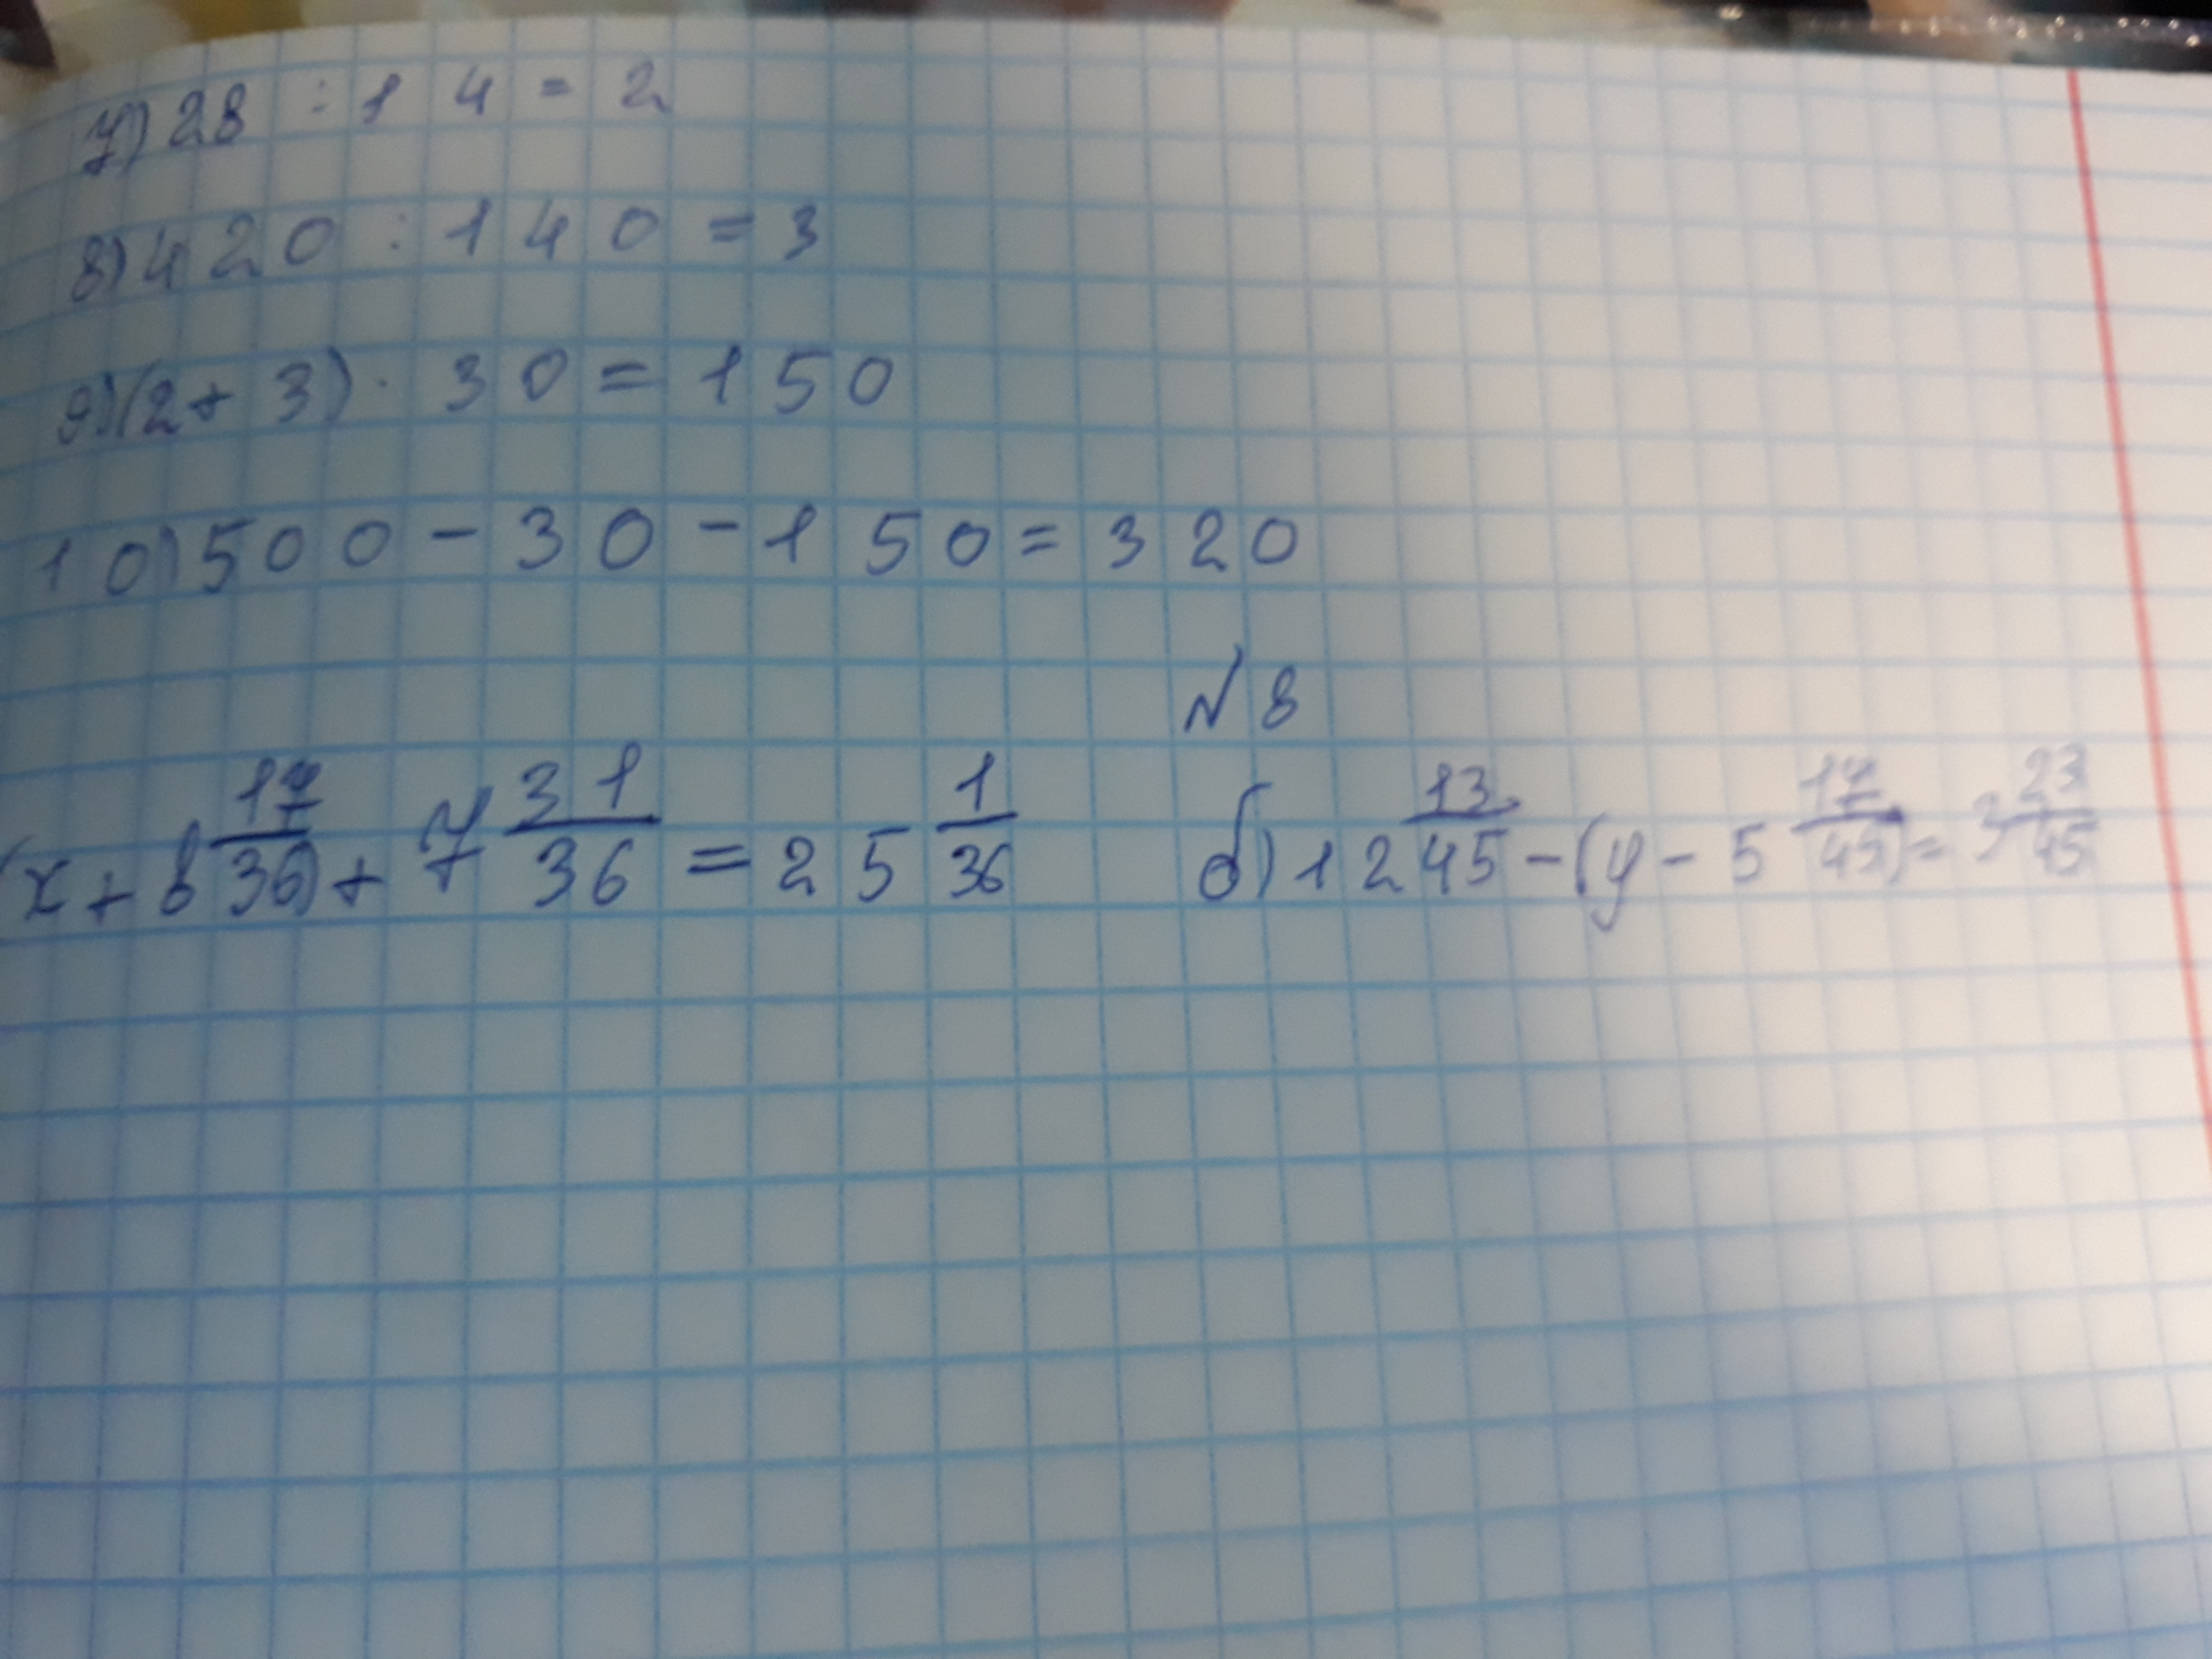 7) 28 : 14 = 2
8) 420 : 140 = 3
9) (2 + 3) · 30 = 150
10) 500 - 30 - 150 = 320
N 8
(x + 8 17/36) + 7 31/36 = 25 1/36   б) 12 13/45 - (y - 5 17/45) = 3 23/45